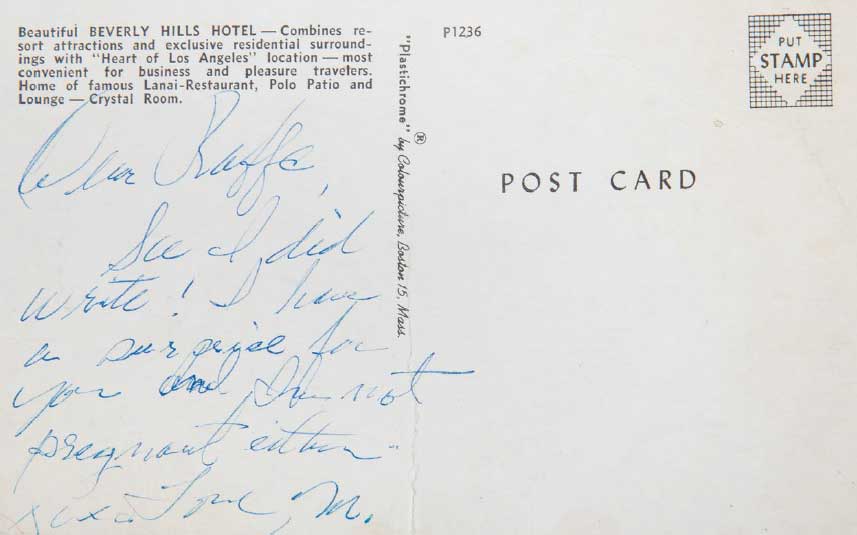 Beautiful BEVERLY HILLS HOTEL — Combines re-
sort attractions and exclusive residential surround-
ings with "Heart of Los Angeles" location — most
convenient for business and pleasure travelers.
Home of famous Lanai-Restaurant, Polo Patio and
Lounge — Crystal Room.
P1236
PUT
STAMP
HERE
"Plastichrome" ® by Colourpicture, Boston 15, Mass.
POST CARD
Dear Raffe,
See I did
write! I have
a surprise for
you and I'm not
pregnant either -
xoxo Love, M.